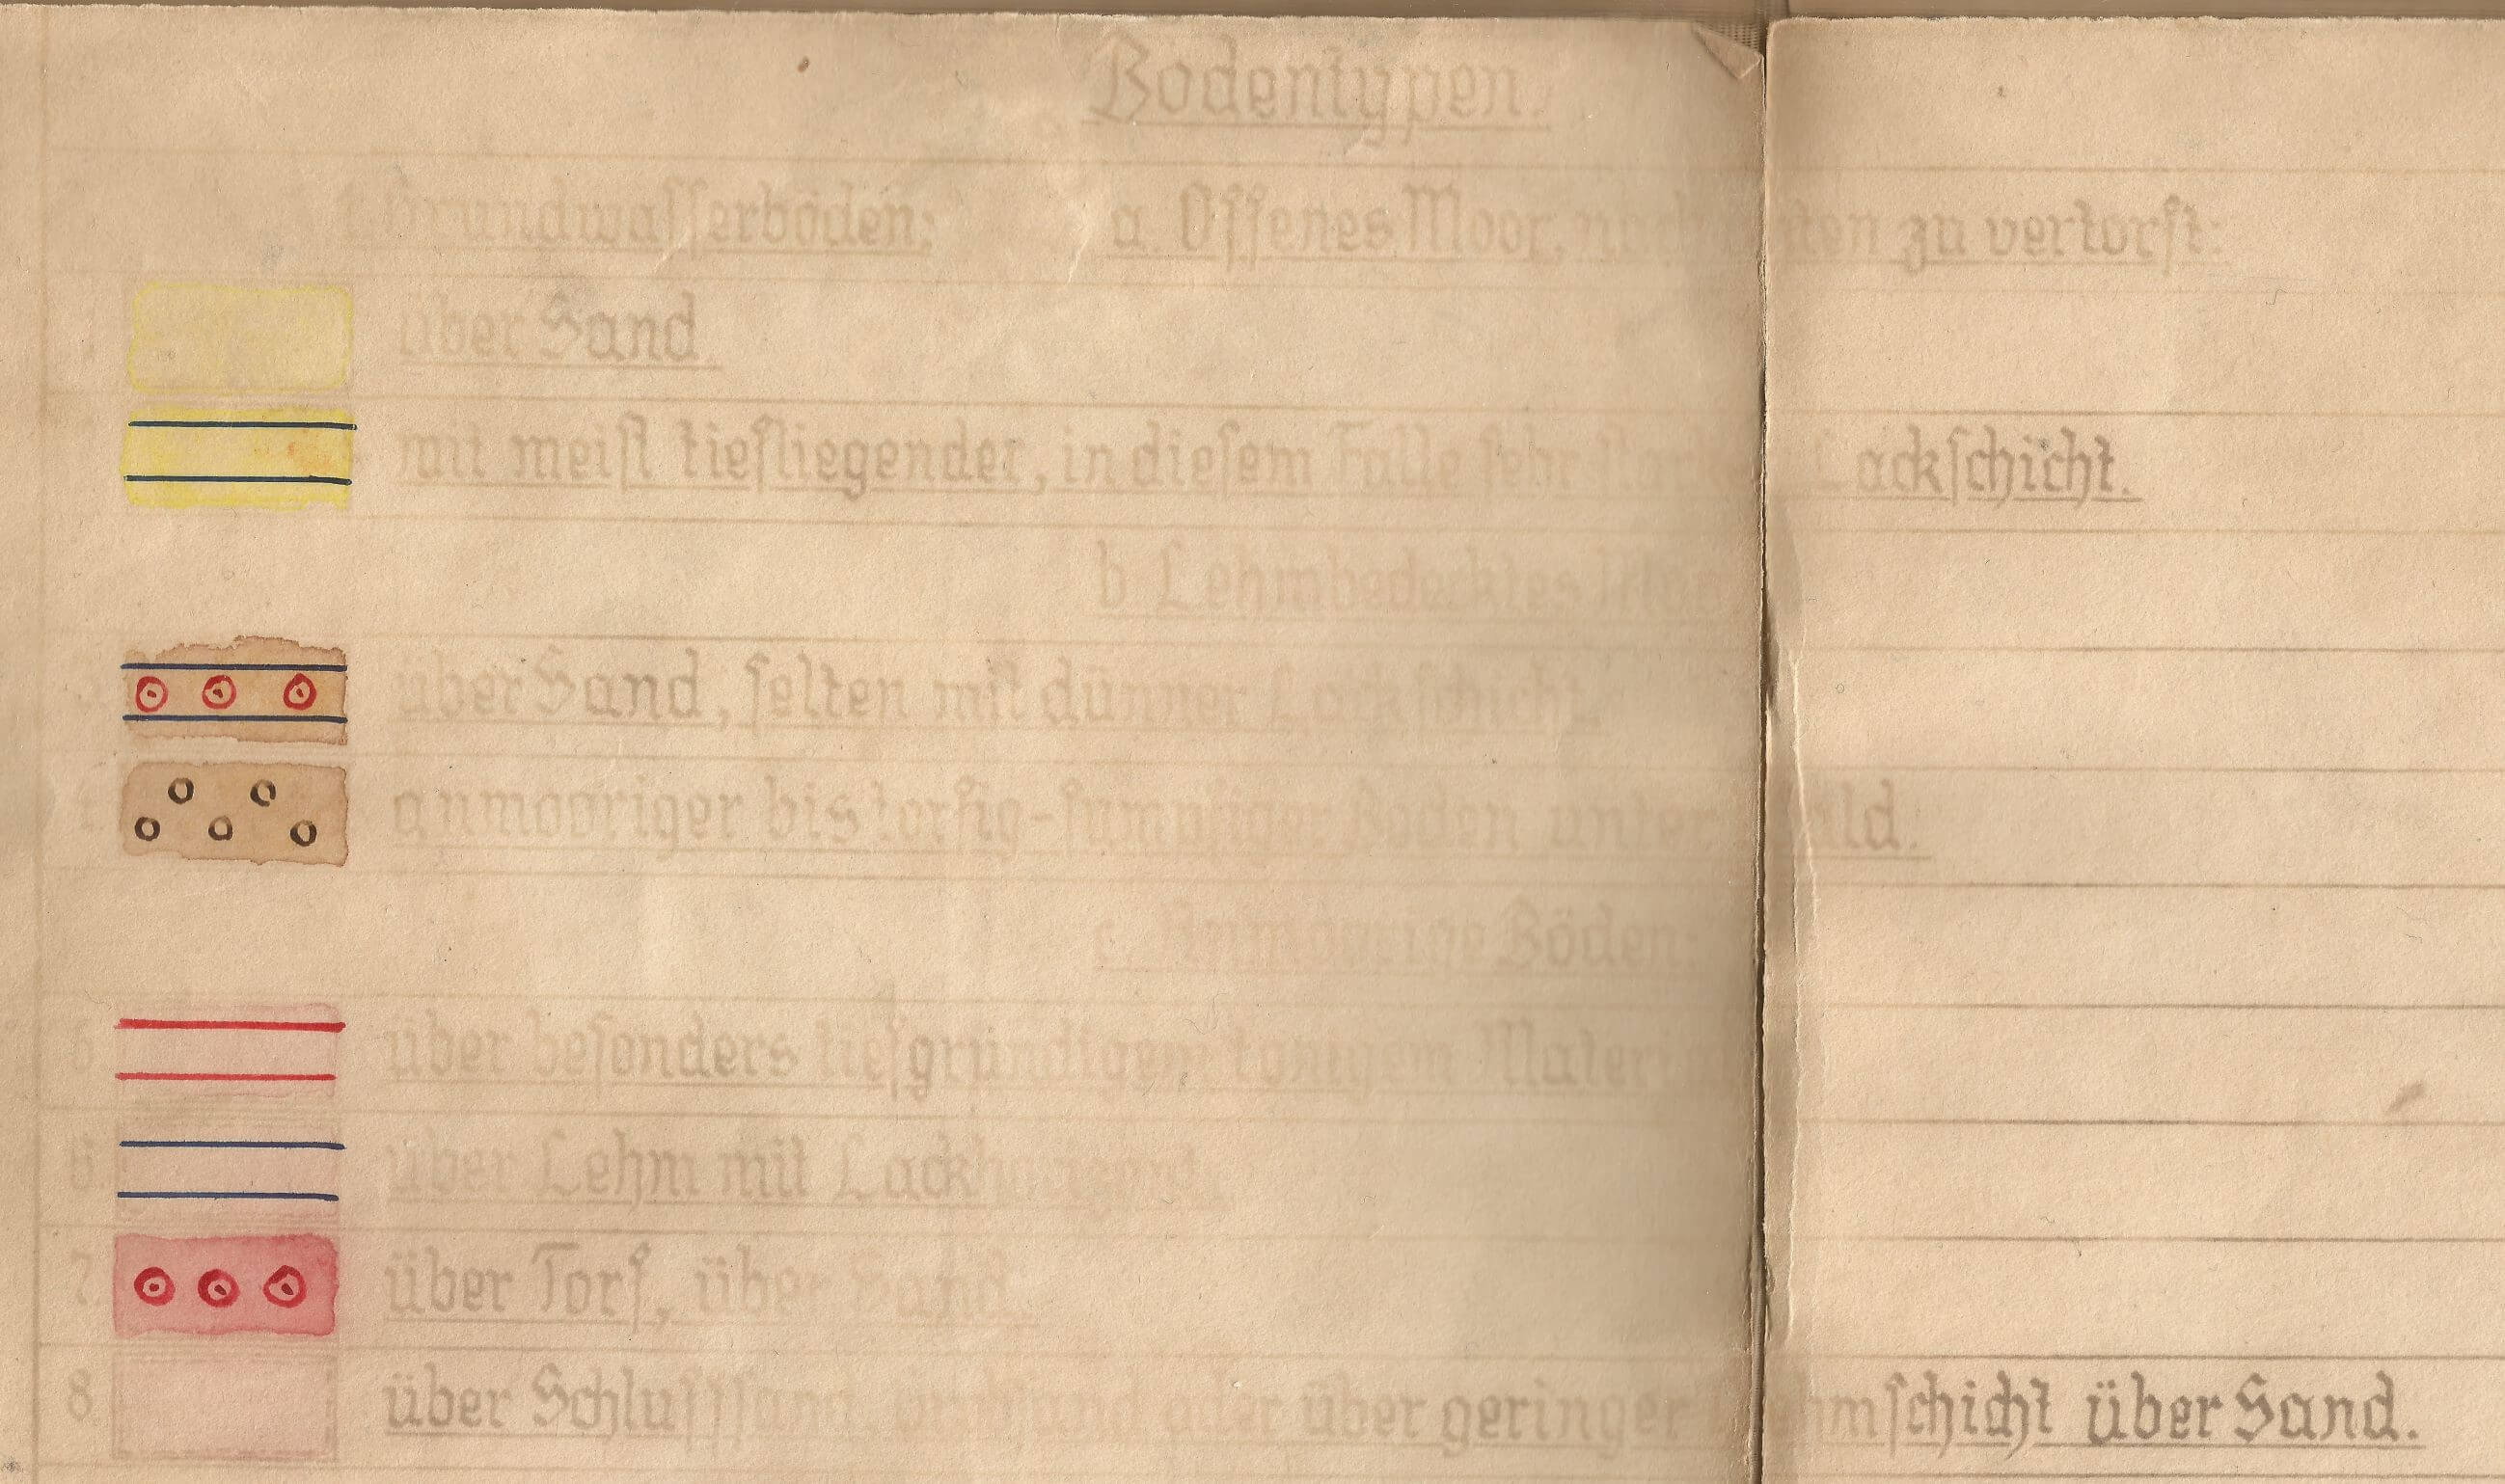 Bodentypen.
1. Grundwasserböden: a. Offenes Moor, nach zu vertorft:
über Sand
mit meist tiefliegender, in diesem Falle sehr starker Lackschicht.
b Lehmbedecktes Moor
über Sand, selten mit dünner Lackschicht.
4. anmooriger bis torfig-sumpfiger Boden unter Wald.
c. Anmoorige Böden:
6 über besonders tiefgründigem tonigem Material
5. über Lehm mit Lackhorizont.
7. über Torf, über Sand.
8. über Schluffsand, oder über geringer Lehmschicht über Sand.